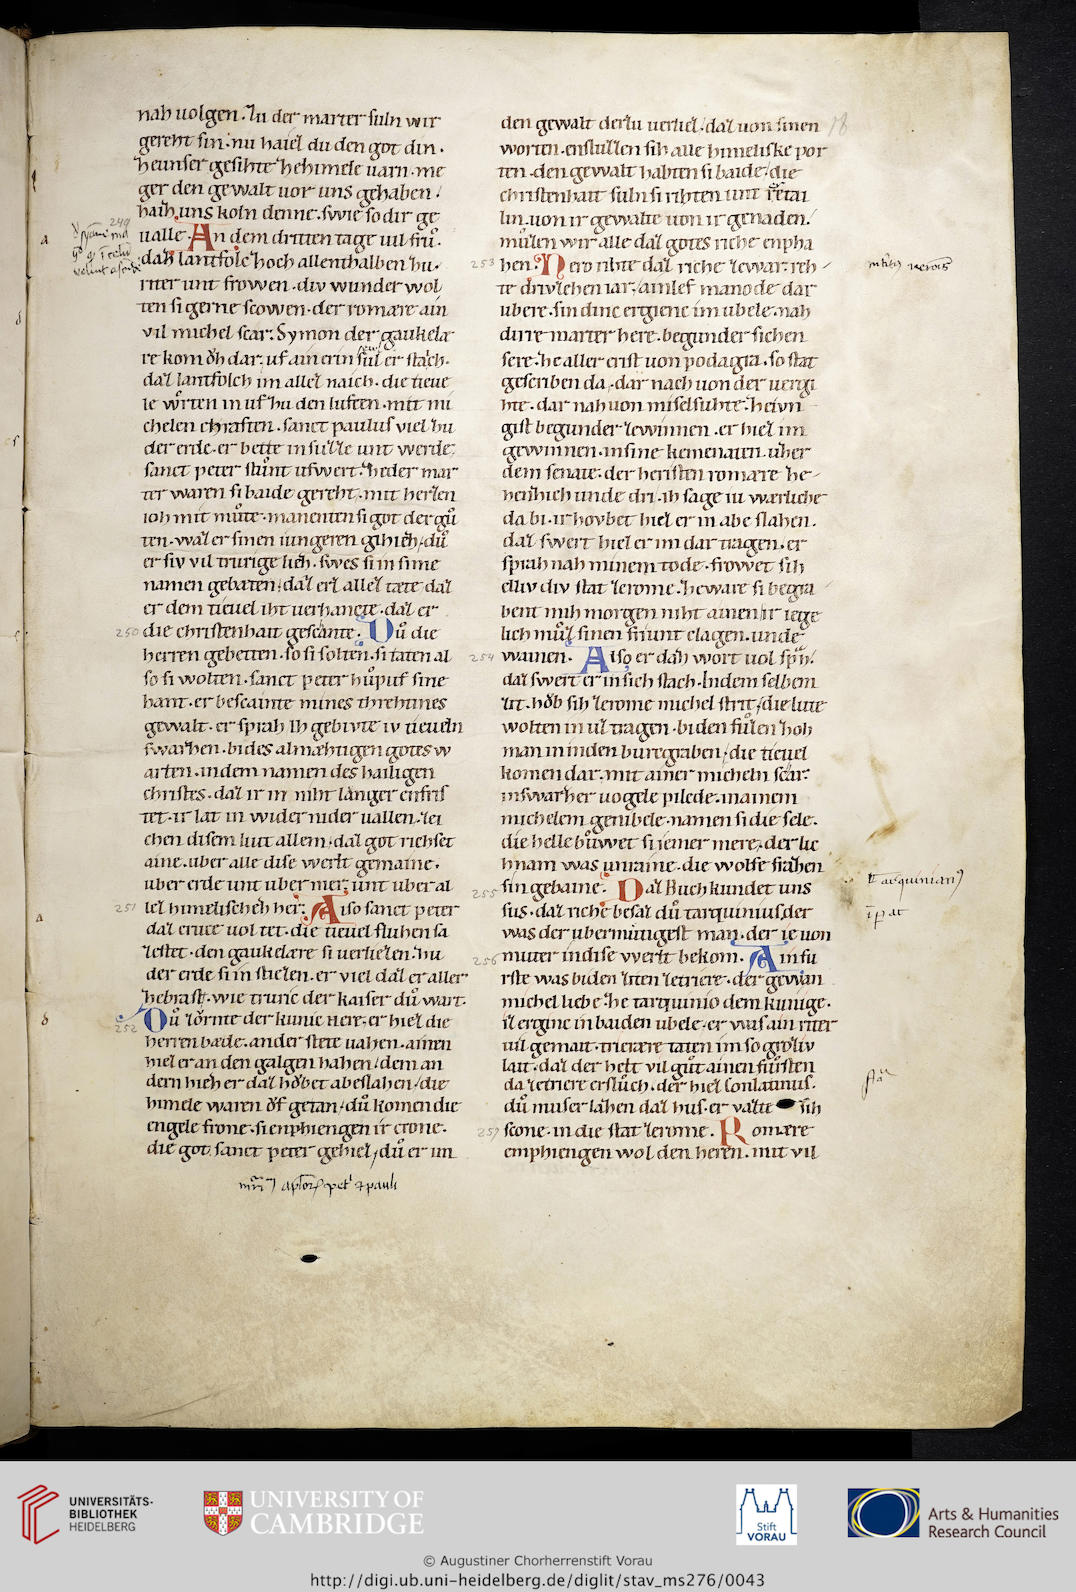 nah uolgen. zu der marter suln wir
gereht sin. nu haizel du den got din.
ze unser gesihte ze himele uarn. me
ger den gewalt uor uns gehaben.
haiz uns koln denne. swie so dir ge
ualle. An dem dritten tage uil frů.
daz lantfolc hoch allenthalben zu.
riter unt frowen. div wunder wol
ten si gerne scowen. der romære ain
vil michel scar. Symon der gaukelæ
re kom ŏh dar. uf ain erin sul er stach.
daz lantfolch im allez naich. die tieue
le fůrten in uf zu den luften. mit mi
chelen chraften. sanct paulus viel zu
der erde. er bette in sulle unt werde.
sanct peter stůnt ufwert. ze der mar
ter waren si baide gereht. mit herzen
ioh mit můte. manenten si got der gů
ten. waz er sinen iungeren gihiez. dů
er siv vil trurige liez. swes si in sime
namen gebaten. daz erz allez tæte daz
er dem tieuel iht uerhancte. daz er
250 die christenhait gescante. Dů die
herren gebetten. so si solten. si taten al
so si wolten. sanct peter hůp uf sine
hant. er bescainte mines threhtines
gewalt. er sprah Ih gebivte iv tieueln
swarzen. bi des almæhtigen gotes w
arten. in dem namen des hailigen
christes. daz ir in niht langer enfris
tet. ir lat in wider nider uallen. zei
chen disem liut allem. daz got richset
aine. uber alle dise werlt gemaine.
uber erde unt uber mer. unt uber al
251 lez himelischez her. Also sanct peter
daz cruce uor tet. die tieuel fluhen sa
zestet. den gaukelære si verliezen. zu
der erde si in stiezen. er viel daz er aller
zebrast. wie truric der kaiser dů wart.
252 Dů zornte der kunic Nere. er hiez die
herren bæde. an der stete uahen. ainen
hiez er an den galgen hahen. dem an
dern hiez er daz hŏbet abeslahen. die
himele waren ŏf getan. dů komen die
engele frone. si enphiengen ir crone.
die got sanct peter gehiez. dů er im
den gewalt der zu uerliez. daz uon sinen
worten. enslůzzen sih alle himeliske por
ten. den gewalt habten si baide. die
christenhait suln si rihten unt
lin. uon ir gewalte uon ir genaden.
můzen wir alle daz gotes riche enpha
253 hen. Nero rihte daz riche zewar. reh
te drivzehen iar. ainlef manode dar
ubere. sin dinc ergienc im ubele. nah
dirre marter here. begunder sichen
sere. ze aller erist uon podagra. so stat
gescriben da. dar nach uon der uergi
hte. dar nah uon miselsuhte. ze iun
gist begunder zewinnen. er hiez im
gewinnen. in sine kemenaten. uber
dem senate. der heristen romære ze
henzich unde dri. ih sage iu wærliche
da bi. ir hovbet hiez er in abe slahen.
daz swert hiez er im dar tragen. er
sprah nah minem tode. frowet sih
elliv div stat ze rome. ze ware si begra
bent mih morgen niht ainen ir iege
lich můz sinen friunt clagen. unde
254 wainen. Also er daz wort uol sprah.
daz swert er in sich stach. In dem selbem
zit. hŏb sih ze rome michel strit. die lute
wolten in uz tragen. bi den fůzen hoh
man in in den burcgraben. die tieuel
komen dar. mit ainer micheln scar.
in swarzer uogele pilede. in ainem
michelem genibele. namen si die sele.
die helle bůwet si iemer mere. der lic
hnam was unraine. die wolfe frazen
255 sin gebaine. Daz Buch kundet uns
sus. daz riche besaz dů tarquinius. der
was der ubermůtigest man. der ie uon
256 muter in dise werlt bekom. Ain fu
rste was bi den ziten ze triere. der gewan
michel liebe. ze tarquinio dem kunige.
iz erginc in baiden ubele. er was ain riter
uil gemait. trierære taten im so groziv
lait. daz der helt vil gůt ainen fůrsten
da ze triere erslůch. der hiez conlatinus.
dů muser lazen daz hus. er valte sih
257 scone. in die stat ze rome. Romære
emphiengen wol den heren. mit vil
249
UNIVERSITÄTS-
BIBLIOTHEK
HEIDELBERG
UNIVERSITY OF
CAMBRIDGE
Stift
VORAU
Arts & Humanities
Research Council
© Augustiner Chorherrenstift Vorau
http://digi.ub.uni-heidelberg.de/diglit/stav_ms276/0043